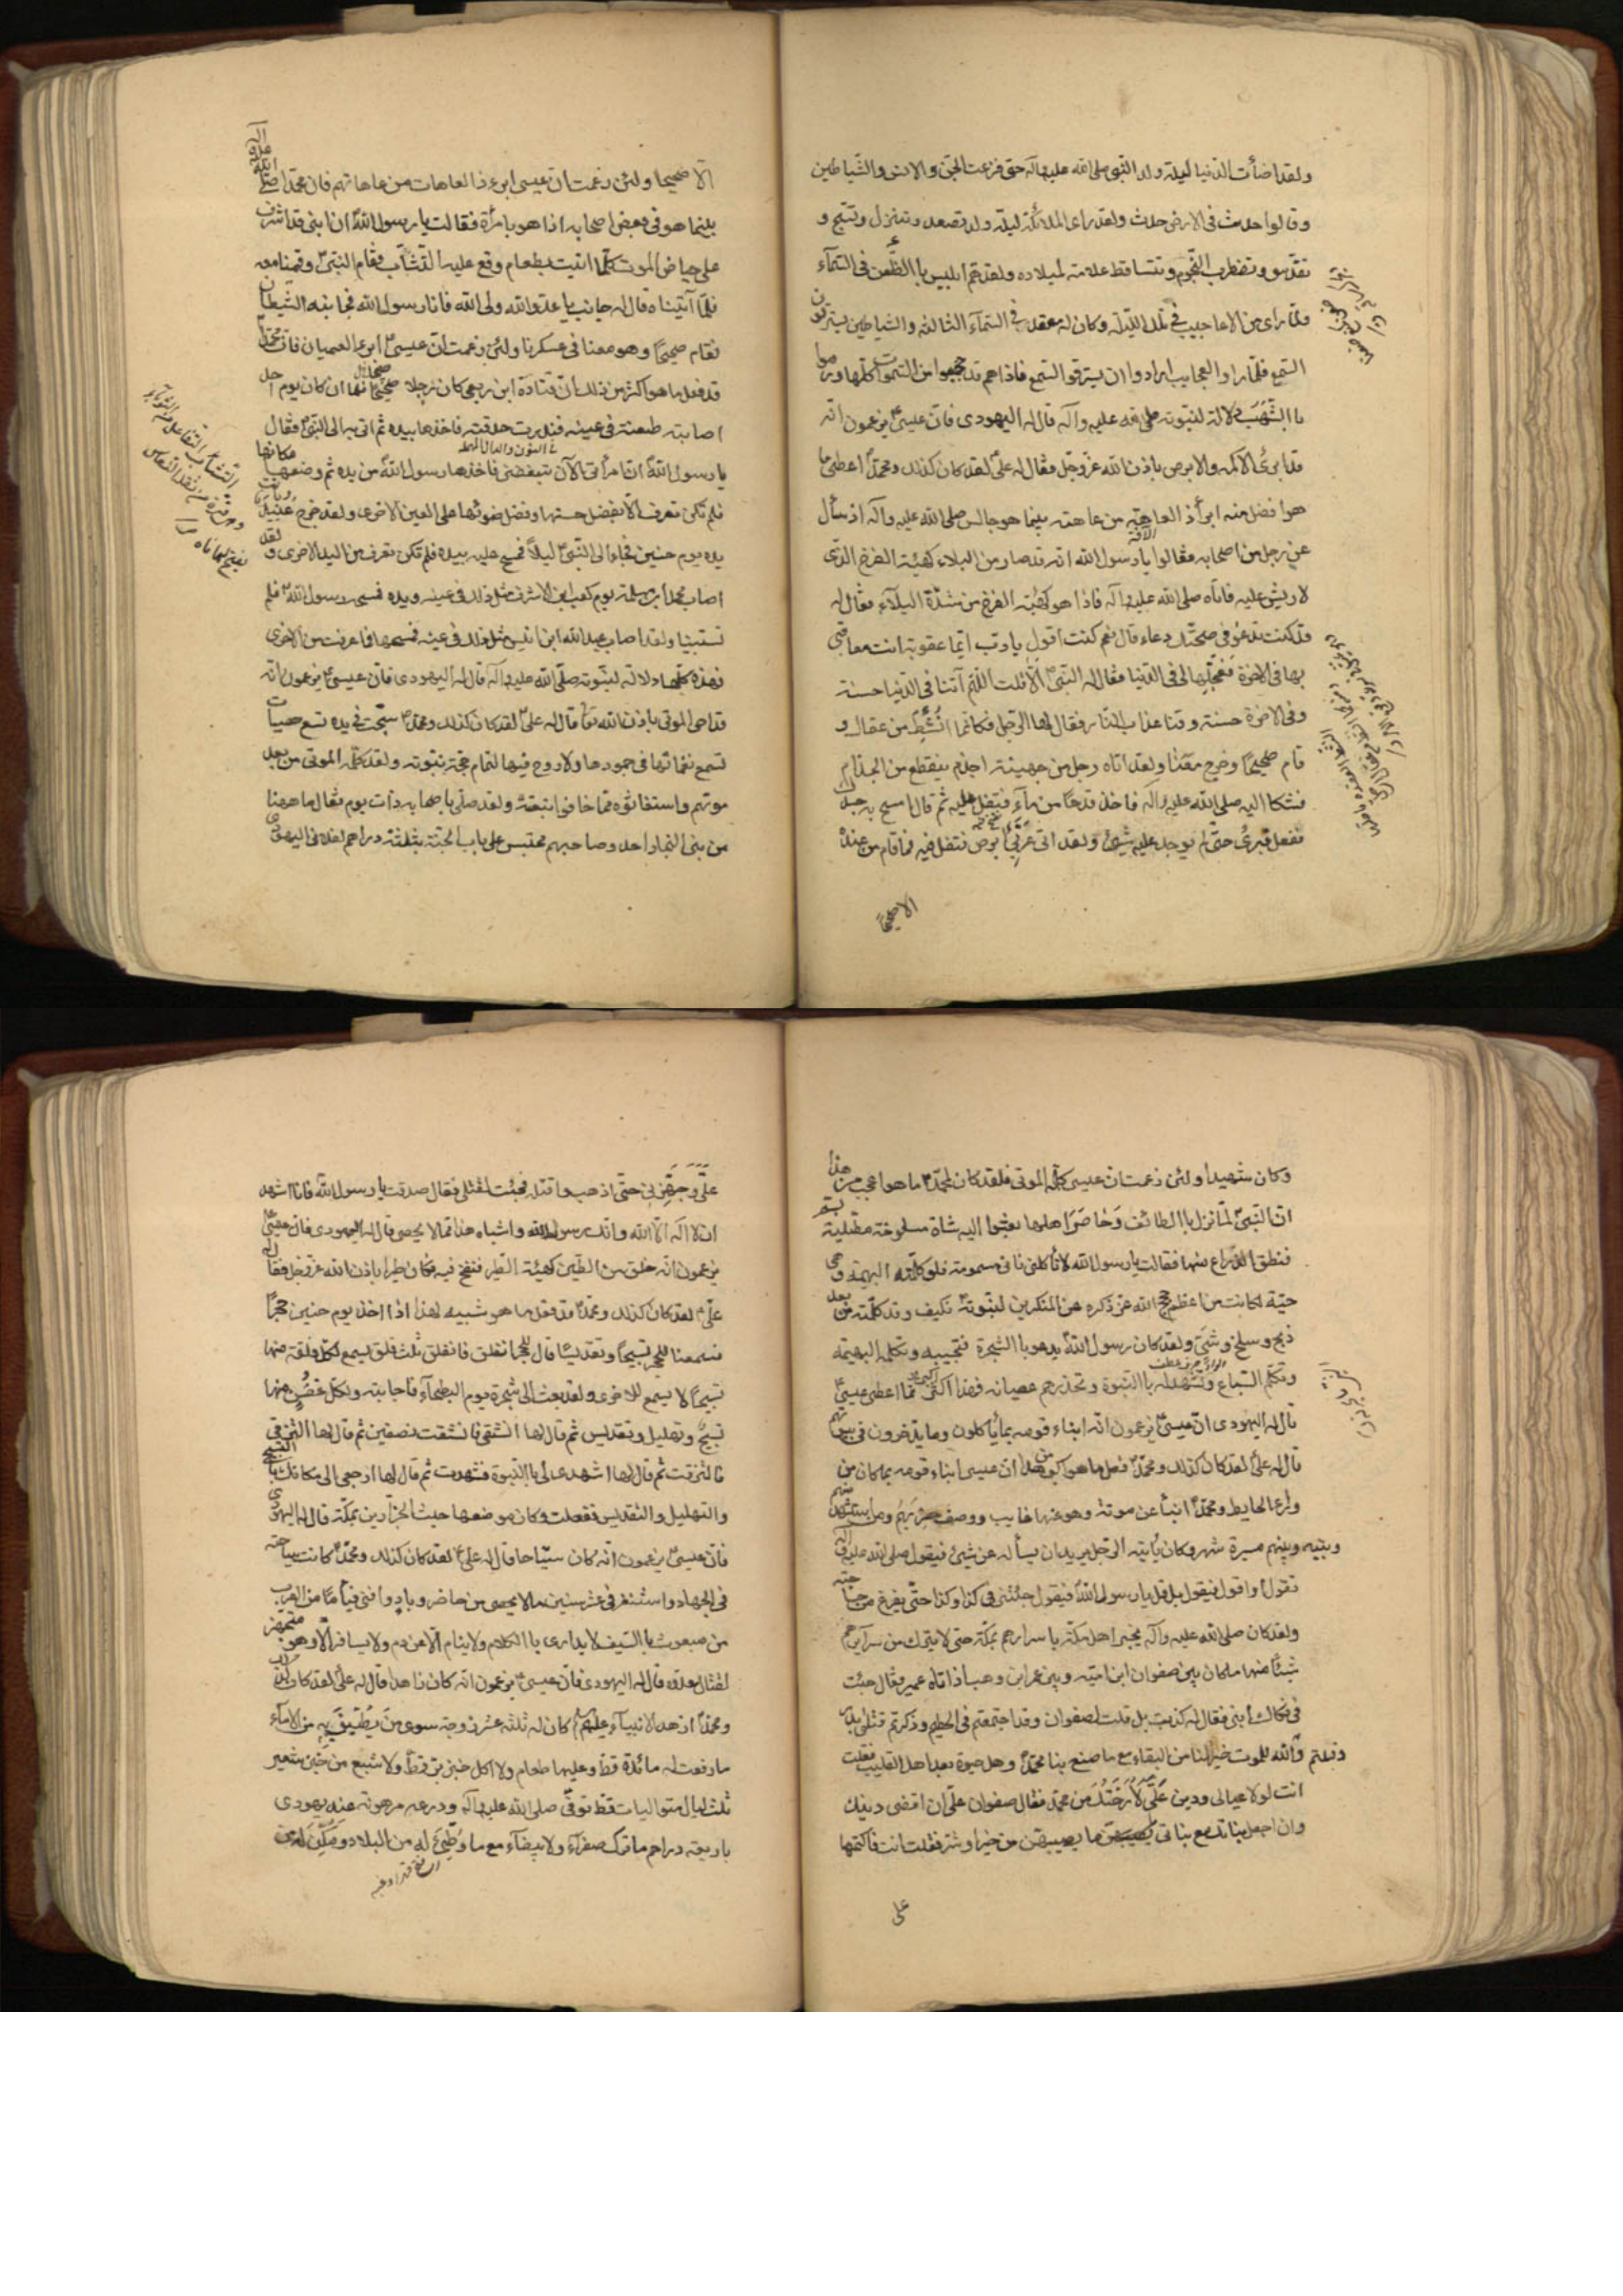 ولقد اضأت الدنيا ليلة ولد النبى صلى الله عليه وآله حتى فزعت الجن والانس والشياطين
وقالوا حدث فى الارض حدث ولقد راى الملائكة ليلة ولد تصعد وتنزل وتسبح و
تقدس وتضطرب النجوم وتتساقط علامة لميلاده ولقد هم ابليس بالظعن فى السماء
لما راى من الاعاجيب فى تلك الليلة وكان له مقعد فى السماء الثالثة والشياطين يسترقون
السمع فلما راوا العجايب ارادوا ان يسترقوا السمع فاذا هم قد حجبوا من السموات كلها ورموا
باالشهب دلالة لنبوته صلى الله عليه وآله قال له اليهودى فان عيسى يزعمون انه
قد ابرئ الاكمه والابرص باذن الله عز وجل فقال له على لقد كان كذلك ومحمد اعطى ما
هوا فضل منه ابرأ ذا العاهة من عاهته بينما هو جالس صلى الله عليه وآله اذ سأل
عن رجل من اصحابه فقالوا يا رسول الله انه قد صار من البلاء كهيئة الفرخ الذى
لا ريش عليه فاتاه صلى الله عليه وآله فاذا هو كهيئة الفرخ من شدة البلاء فقال له
قد كنت تدعو فى صحتك دعاء قال نعم كنت اقول يا رب ايما عقوبة انت معاقبى
بها فى الاخرة فعجلها لى فى الدنيا فقال له النبى الا قلت اللهم آتنا فى الدنيا حسنة
وفى الاخرة حسنة وقنا عذاب النار فقال لها الرجل فكانما انشط من عقال و
قام صحيحا وخرج معنا ولقد اتاه رجل من جهينة اجذم يتقطع من الجذام
فشكا اليه صلى الله عليه وآله فاخذ قدحا من ماء فتفل عليه ثم قال امسح به جسدك
ففعل فبرئ حتى لم يوجد عليه شيئ ولقد اتى عربى ابرص فتفل فيه فما قام من عنده
الا صحيحا
الا صحيحا ولئن زعمت ان عيسى ابرء ذا العاهات من عاهاتهم فان محمدا صلى الله عليه وآله
بينما هو فى بعض اصحابه اذا هو بامرأة فقالت يا رسول الله ان ابنى قد اشرف
على حياض الموت كلما اتيت بطعام وقع عليه التثآب فقام النبى وقمنا معه
فلما آتيناه قال له جانب يا عدو الله ولى الله فانا رسول الله فجانبه الشيطان
فقام صحيحا وهو معنا فى عسكرنا ولئن زعمت ان عيسى ابرء العميان فان محمدا
قد فعل ما هو اكثر من ذلك ان قتادة ابن ربعى كان رجلا صحيحا فلما ان كان يوم احد
اصابته طعنة فى عينه فبدرت حدقته فاخذها بيده ثم اتى به الى النبى فقال
يا رسول الله ان امرأتى الآن تبغضنى فاخذها رسول الله من يده ثم وضعها مكانها
فلم تكن تعرف الا بفضل حسنها وفضل ضوئها على العين الاخرى ولقد جرح عبد الله
يده يوم حنين فجاء الى النبى ليلا فمسح عليه بيده فلم تكن تعرف من اليد الاخرى ولقد
اصاب محمد ابن سلمة يوم كعب ابن الاشرف مثل ذلك فى عينه ويده فمسحه رسول الله فلم
تستبينا ولقد اصاب عبد الله ابن انيس مثل ذلك فى عينه فمسحها فما عرفت من الاخرى
فهذه كلها دلالة لنبوته صلى الله عليه وآله قال له اليهودى فان عيسى يزعمون انه
قد احى الموتى باذن الله تعا قال له على لقد كان كذلك ومحمد سبحت فى يده تسع حصيات
تسمع نغماتها فى جمودها ولا روح فيها لتمام حجة نبوته ولقد كلمه الموتى من بعد
موتهم واستغاثوه مما خافوا تبعته ولقد صلى باصحابه ذات يوم فقال ما ههنا
من بنى النجار احد وصاحبهم محتبس على باب الجنة بثلثة دراهم لفلان اليهودى
وكان شهيدا ولئن زعمت ان عيسى كلم الموتى فلقد كان لمحمد ما هو اعجب من هذا
ان النبى لما نزل باالطائف وحاصر اهلها بعثوا اليه شاة مسلوخة مطلية بسم
فنطق الذراع منها فقالت يا رسول الله لا تأكلنى فانى مسمومة فلو كلمته البهيمة وهى
حية لكانت من اعظم حجج الله عز ذكره على المنكرين لنبوته فكيف وقد كلمته من بعد
ذبح وسلخ وشى ولقد كان رسول الله يدعو باالشجرة فتجيبه وتكلمه البهيمة
وتكلم السباع وتشهد له باالنبوة وتحذرهم عصيانه فهذا اكثر مما اعطى عيسى
قال له اليهودى ان عيسى يزعمون انه انباء قومه بما يأكلون وما يدخرون فى بيوتهم
قال له على لقد كان كذلك ومحمد فعل ما هو اكبر من هذا ان عيسى انباء قومه بما كان من
وراء الحايط ومحمد انبأ عن موته وهو عنها غايب ووصف حربهم ومن استشهد منهم
وبينه وبينهم مسيرة شهر وكان يأتيه الرجل يريد ان يسأله عن شيئ فيقول صلى الله عليه وآله
تقول او اقول فيقول بل قل يا رسول الله فيقول جئتنى فى كذا وكذا حتى يفرغ من حاجته
ولقد كان صلى الله عليه وآله يخبر اهل مكة باسرارهم بمكة حتى لا يترك من سرآيرهم
شيئا منها ما كان بين صفوان ابن امية وبين عمير ابن وهب اذا اتاه عمير فقال جئت
فى فكاك ابنى فقال له كذبت بل قلت لصفوان وقد اجتمعتم فى الحطيم وذكرتم قتلى بدر
وقلتم والله للموت خير لنا من البقاء مع ما صنع بنا محمد وهل حيوة بعد اهل القليب فقلت
انت لولا عيالى ودين على لارحتك من محمد فقال صفوان على ان اقضى دينك
وان اجعل بناتك مع بناتى يصيبهن ما يصيبهن من خير او شر فقلت انت فاكتمها
على
على وجهزنى حتى اذهب فاقتله فجئت لتقتلنى فقال صدقت يا رسول الله فانا اشهد
ان لا اله الا الله وانك رسول الله واشباه هذا مما لا يحصى قال له اليهودى فان عيسى
يزعمون انه خلق من الطين كهيئة الطير فنفخ فيه فكان طيرا باذن الله عز وجل فقال له
على لقد كان كذلك ومحمد قد فعل ما هو شبيه لهذا اذا اخذ يوم حنين حجرا
فسمعنا للحجر تسبيحا وتقديسا قال للحجر انفلق فانفلق ثلث فلق يسمع لكل فلقة منها
تسبيحا لا يسمع للاخرى ولقد بعث الى شجرة يوم البطحاء فاجابته ولكل غصن منها
تسبيح وتهليل وتقديس ثم قال لها انشقى فانشقت نصفين ثم قال لها التزقى
فالتزقت ثم قال لها اشهدى لى باالنبوة فشهدت ثم قال لها ارجعى الى مكانك باالتسبيح
والتهليل والتقديس ففعلت وكان موضعها حيث الجزارين بمكة قال له اليهودى
فان عيسى يزعمون انه كان سياحا قال له على لقد كان كذلك ومحمد كانت سياحته
فى الجهاد واستنفر فى عشر سنين ما لا يحصى من حاضر وباد وافنى فئاما من العرب
من مبعوث باالسيف لا يدارى باالكلام ولا ينام الا عن دم ولا يسافر الا وهو متجهز
لقتال عدوه قال له اليهودى فان عيسى يزعمون انه كان زاهدا قال له على لقد كان كذلك
ومحمد ازهد الانبيآء عليهم كان له ثلثة عشر زوجة سوى من يطيف به من الامآء
ما رفعت له مائدة قط وعليها طعام ولا اكل خبز بر قط ولا شبع من خبز شعير
ثلث ليال متواليات قط توفى صلى الله عليه وآله ودرعه مرهونة عند يهودى
باربعة دراهم ما ترك صفرآء ولا بيضآء مع ما وطئ له من البلاد ومكن له من